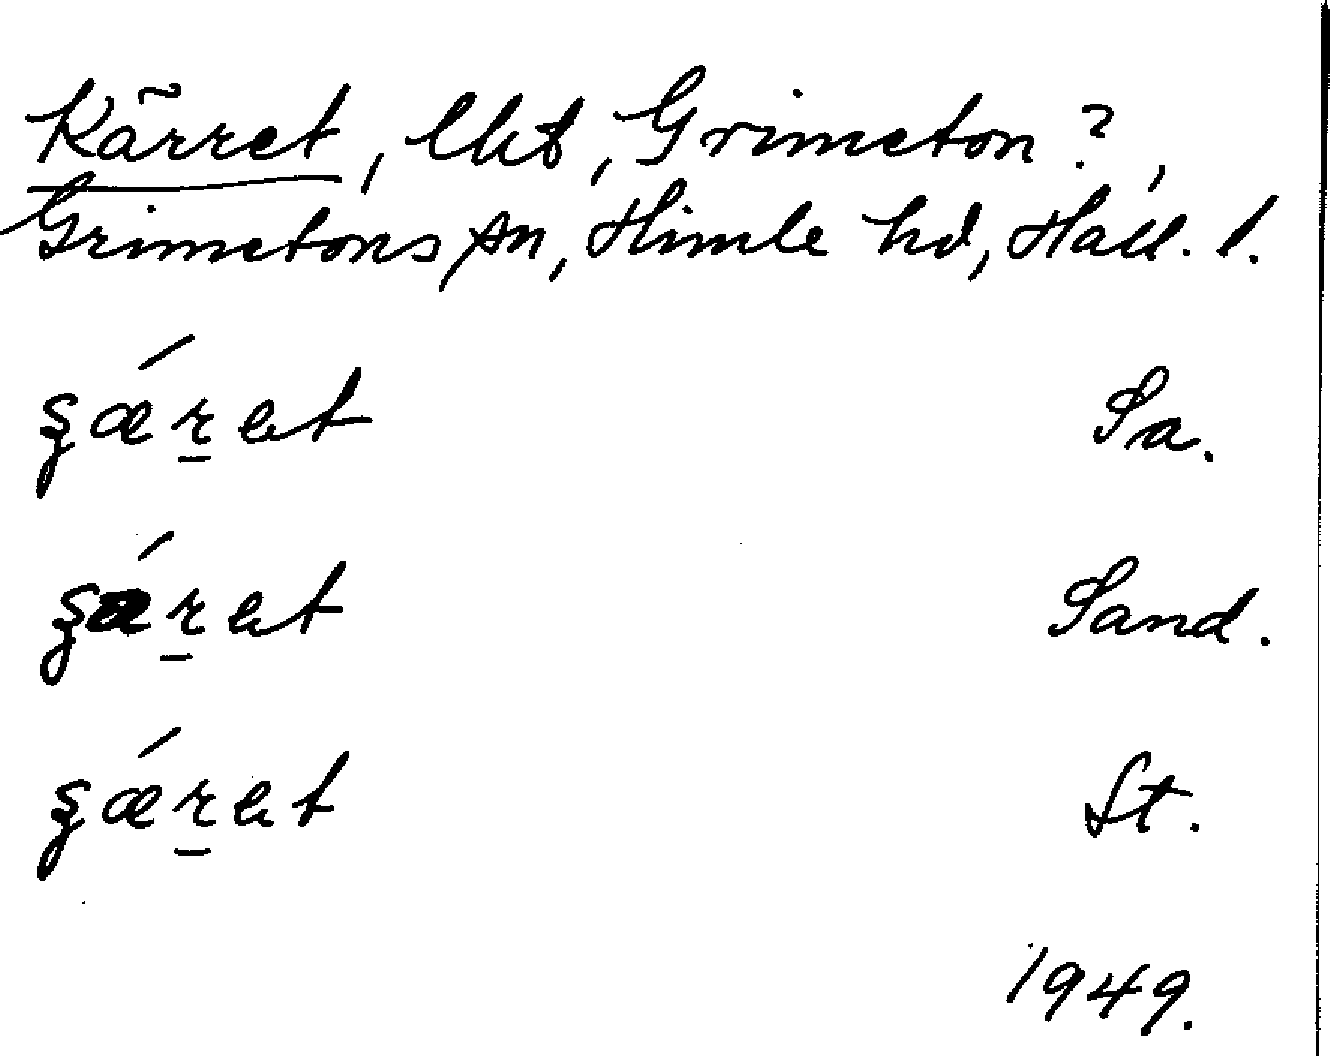 Kärret, lht, Grimeton?,
Grimetons sn, Himle hd, Hall. l.
ʂǽr̲et Sa.
ʂǽr̲et Sand.
ʂǽr̲et St.
1949.